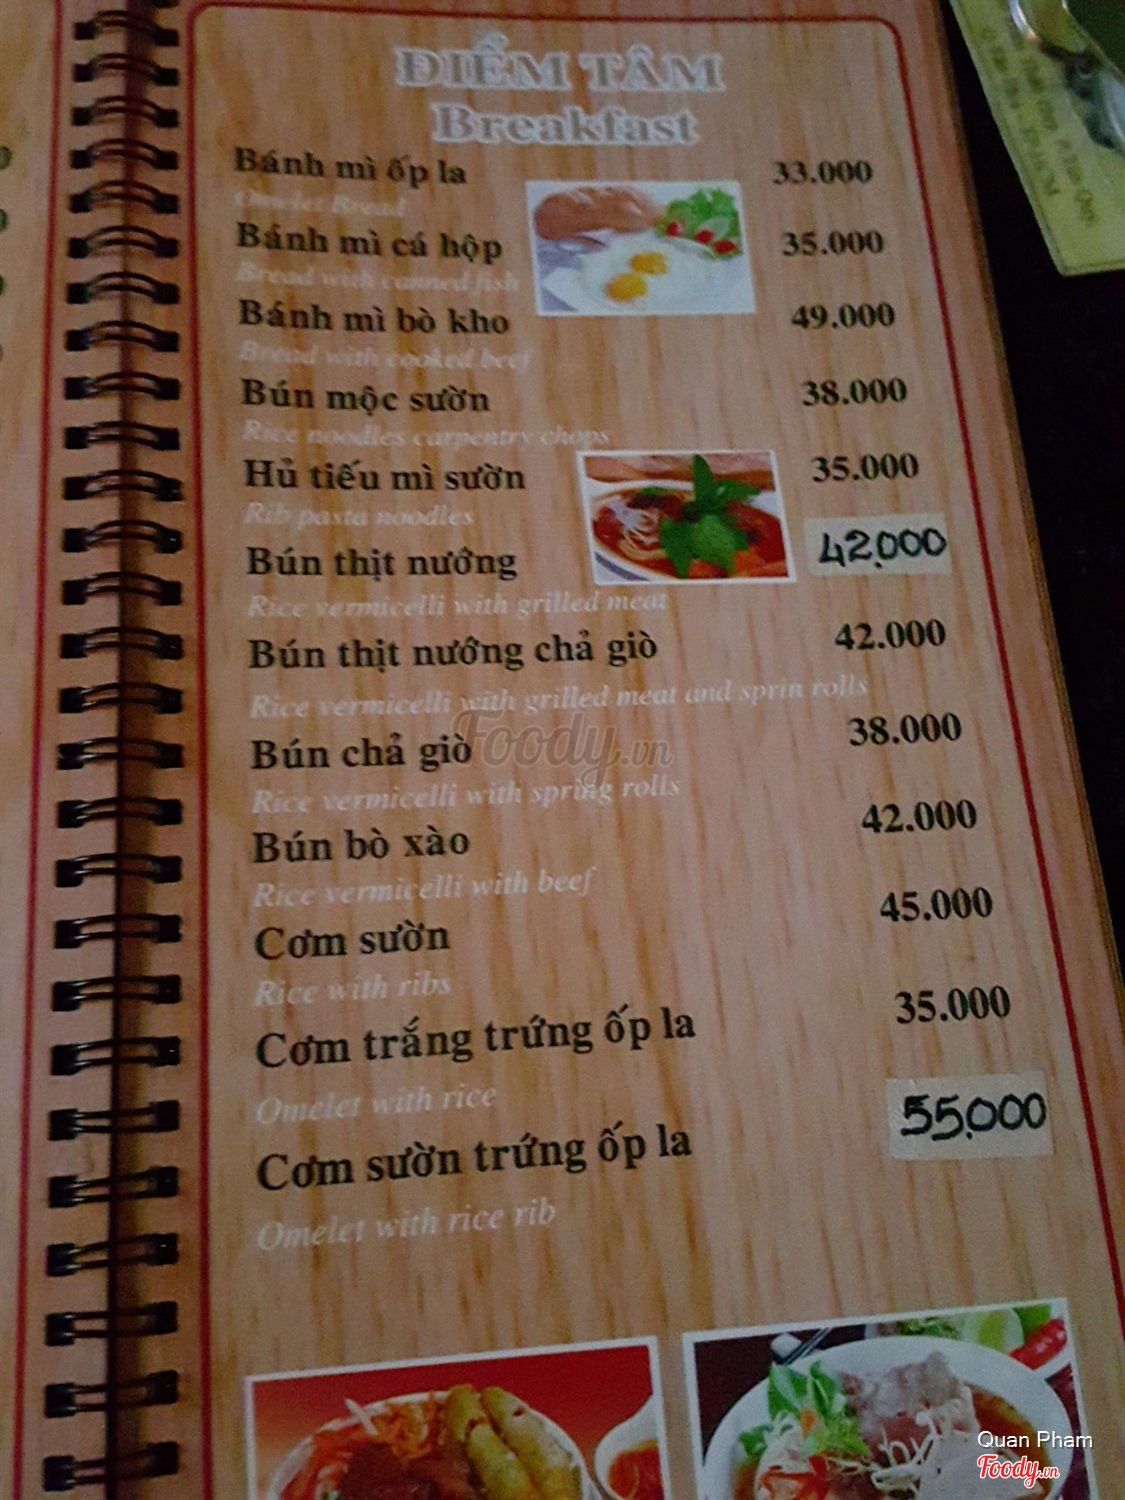 ĐIỂM TÂM
Breakfast
Bánh mì ốp la 33.000
Omelet Bread
Bánh mì cá hộp 35.000
Bread with canned fish
Bánh mì bò kho 49.000
Bread with cooked beef
Bún mộc sườn 38.000
Rice noodles carpentry chops
Hủ tiếu mì sườn 35.000
Rib pasta noodles
Bún thịt nướng 42.000
Rice vermicelli with grilled meat
Bún thịt nướng chả giò 42.000
Rice vermicelli with grilled meat and sprin rolls
Bún chả giò 38.000
Rice vermicelli with spring rolls
Bún bò xào 42.000
Rice vermicelli with beef
Cơm sườn 45.000
Rice with ribs
Cơm trắng trứng ốp la 35.000
Omelet with rice
Cơm sườn trứng ốp la 55.000
Omelet with rice rib
Foody.vn
Quan Pham
Foody.vn